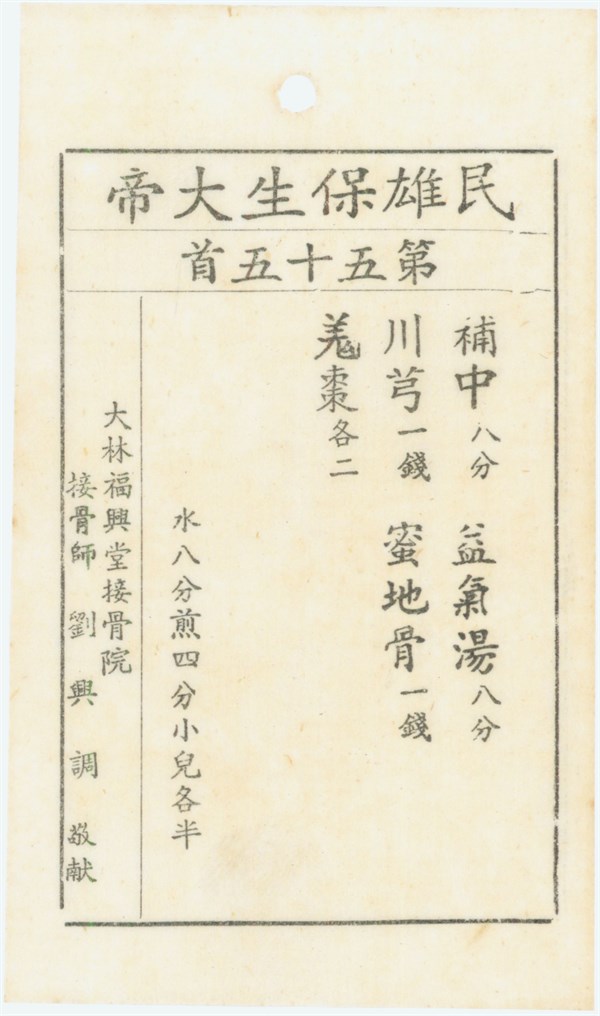 民雄保生大帝
第五十五首
補中八分 益氣湯八分
川芎一錢 蜜地骨一錢
羗棗各二
水八分煎四分小兒各半
大林福興堂接骨院
接骨師 劉興調 敬献